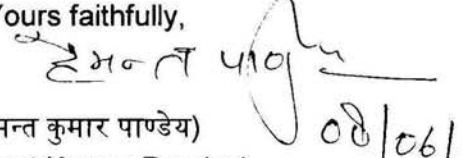 Yours faithfully,
हेमन्त पाण्डेय
08/06/
मन्त कुमार पाण्डेय)